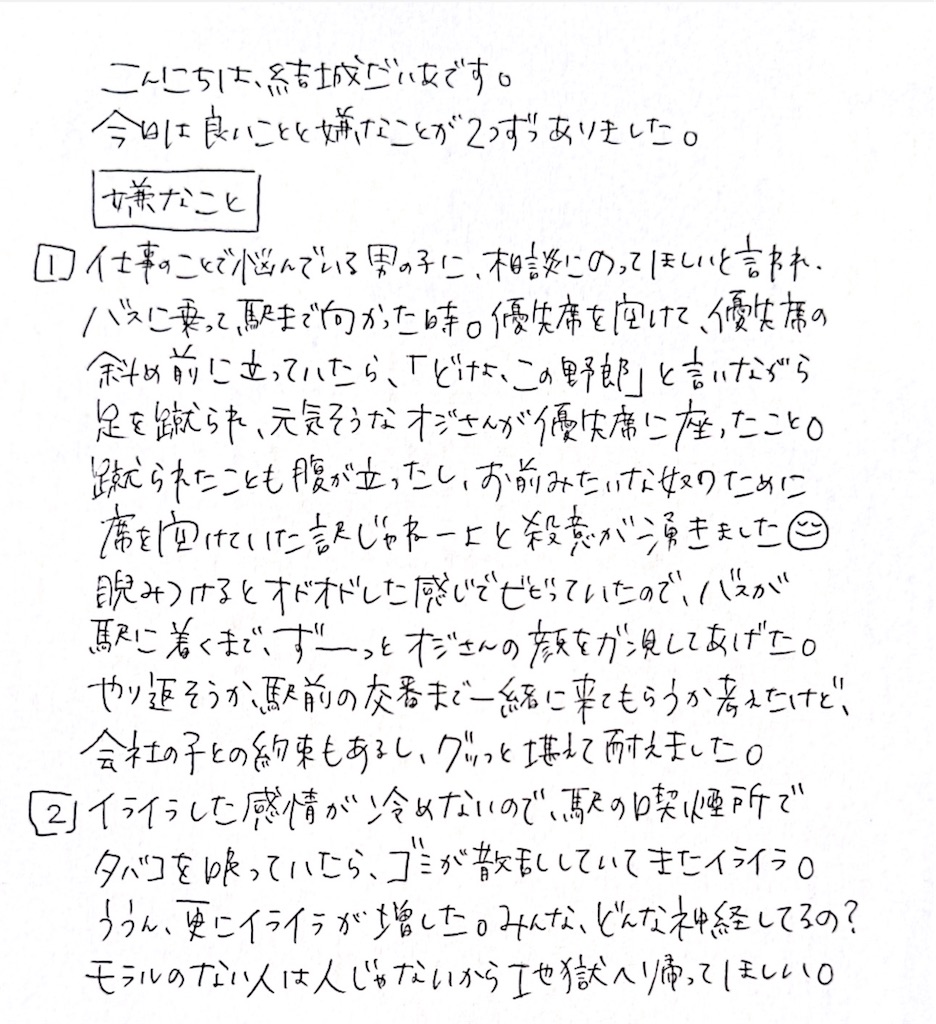 こんにちは、結城だいなです。
今日は良いことと嫌なことが2つずつありました。
嫌なこと
1 仕事のことで悩んでいる男の子に、相談にのってほしいと言われ、
バスに乗って駅まで向かった時。優先席を空けて、優先席の
斜め前に立っていたら、「どけよ、この野郎」と言いながら
足を蹴られ、元気そうなオジさんが優先席に座ったこと。
蹴られたことも腹が立ったし、お前みたいな奴のために
席を空けていた訳じゃねーよと殺意が湧きました
睨みつけるとオドオドした感じでビビっていたので、バスが
駅に着くまで、ずーーっとオジさんの顔をガン見してあげた。
やり返そうか、駅前の交番まで一緒に来てもらうか考えたけど、
会社の子との約束もあるし、グッと堪えて耐えました。
2 イライラした感情が冷めないので、駅の喫煙所で
タバコを吸っていたら、ゴミが散乱していてまたイライラ。
ううん、更にイライラが増した。みんな、どんな神経してるの?
モラルのない人は人じゃないから地獄へ帰ってほしい。